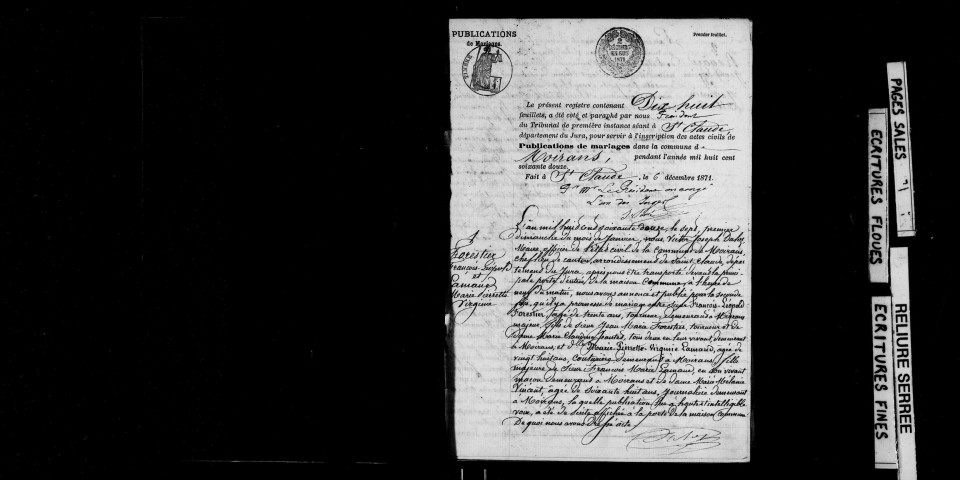 PUBLICATIONS
de Mariages.
Premier feuillet.
TIMBRE
Le présent registre contenant Dix huit
feuillets, a été coté et paraphé par nous Président
du Tribunal de première instance séant à St Claude,
département du Jura, pour servir à l'inscription des actes civils de
Publications de mariages dans la commune d
Moirans, pendant l'année mil huit cent
soixante douze.
Fait à St Claude, le 6 décembre 1871.
Pr Mr Le Président en congé
L'un des Juges
1
Forestier
François Léopold
et
Lamand
Marie Pierrette
Virginie
L'an mil huit cent soixante douze, le sept, premier
dimanche du mois de Janvier, nous Victor Joseph
Maire officier de l'état civil de la commune de Moirans,
chef lieu de canton, arrondissement de Saint Claude, dépar
tement du Jura, après nous être transporté devant la princi
pale porte d'entrée de la maison Commune à l'heure de
neuf du matin, nous avons annoncé et publié pour la seconde
fois, qu'il y a promesse de mariage entre Sieur François Léopold
Forestier, âgé de trente ans, tourneur, demeurant à Moirans
majeur, fils de sieur Jean Marie Forestier, tourneur et de
Dame Marie Claudine tous deux en leur vivant, demeurant
à Moirans, et Dlle Marie Pierrette Virginie Lamand, âgée de
vingt huit ans, couturière demeurant à Moirans, fille
majeure de Sieur François Marie Lamand, en son vivant
maçon demeurant à Moirans et de Dame Marie Mélanie
Vincent, âgée de soixante huit ans, journalière demeurant
à Moirans, la quelle publication, lue à haute et intelligible
voix, a été de suite affichée à la porte de la maison Commune
De quoi nous avons dressé acte
PAGES SALES
ECRITURES FLOUES
RELIURE SERREE
ECRITURES FINES